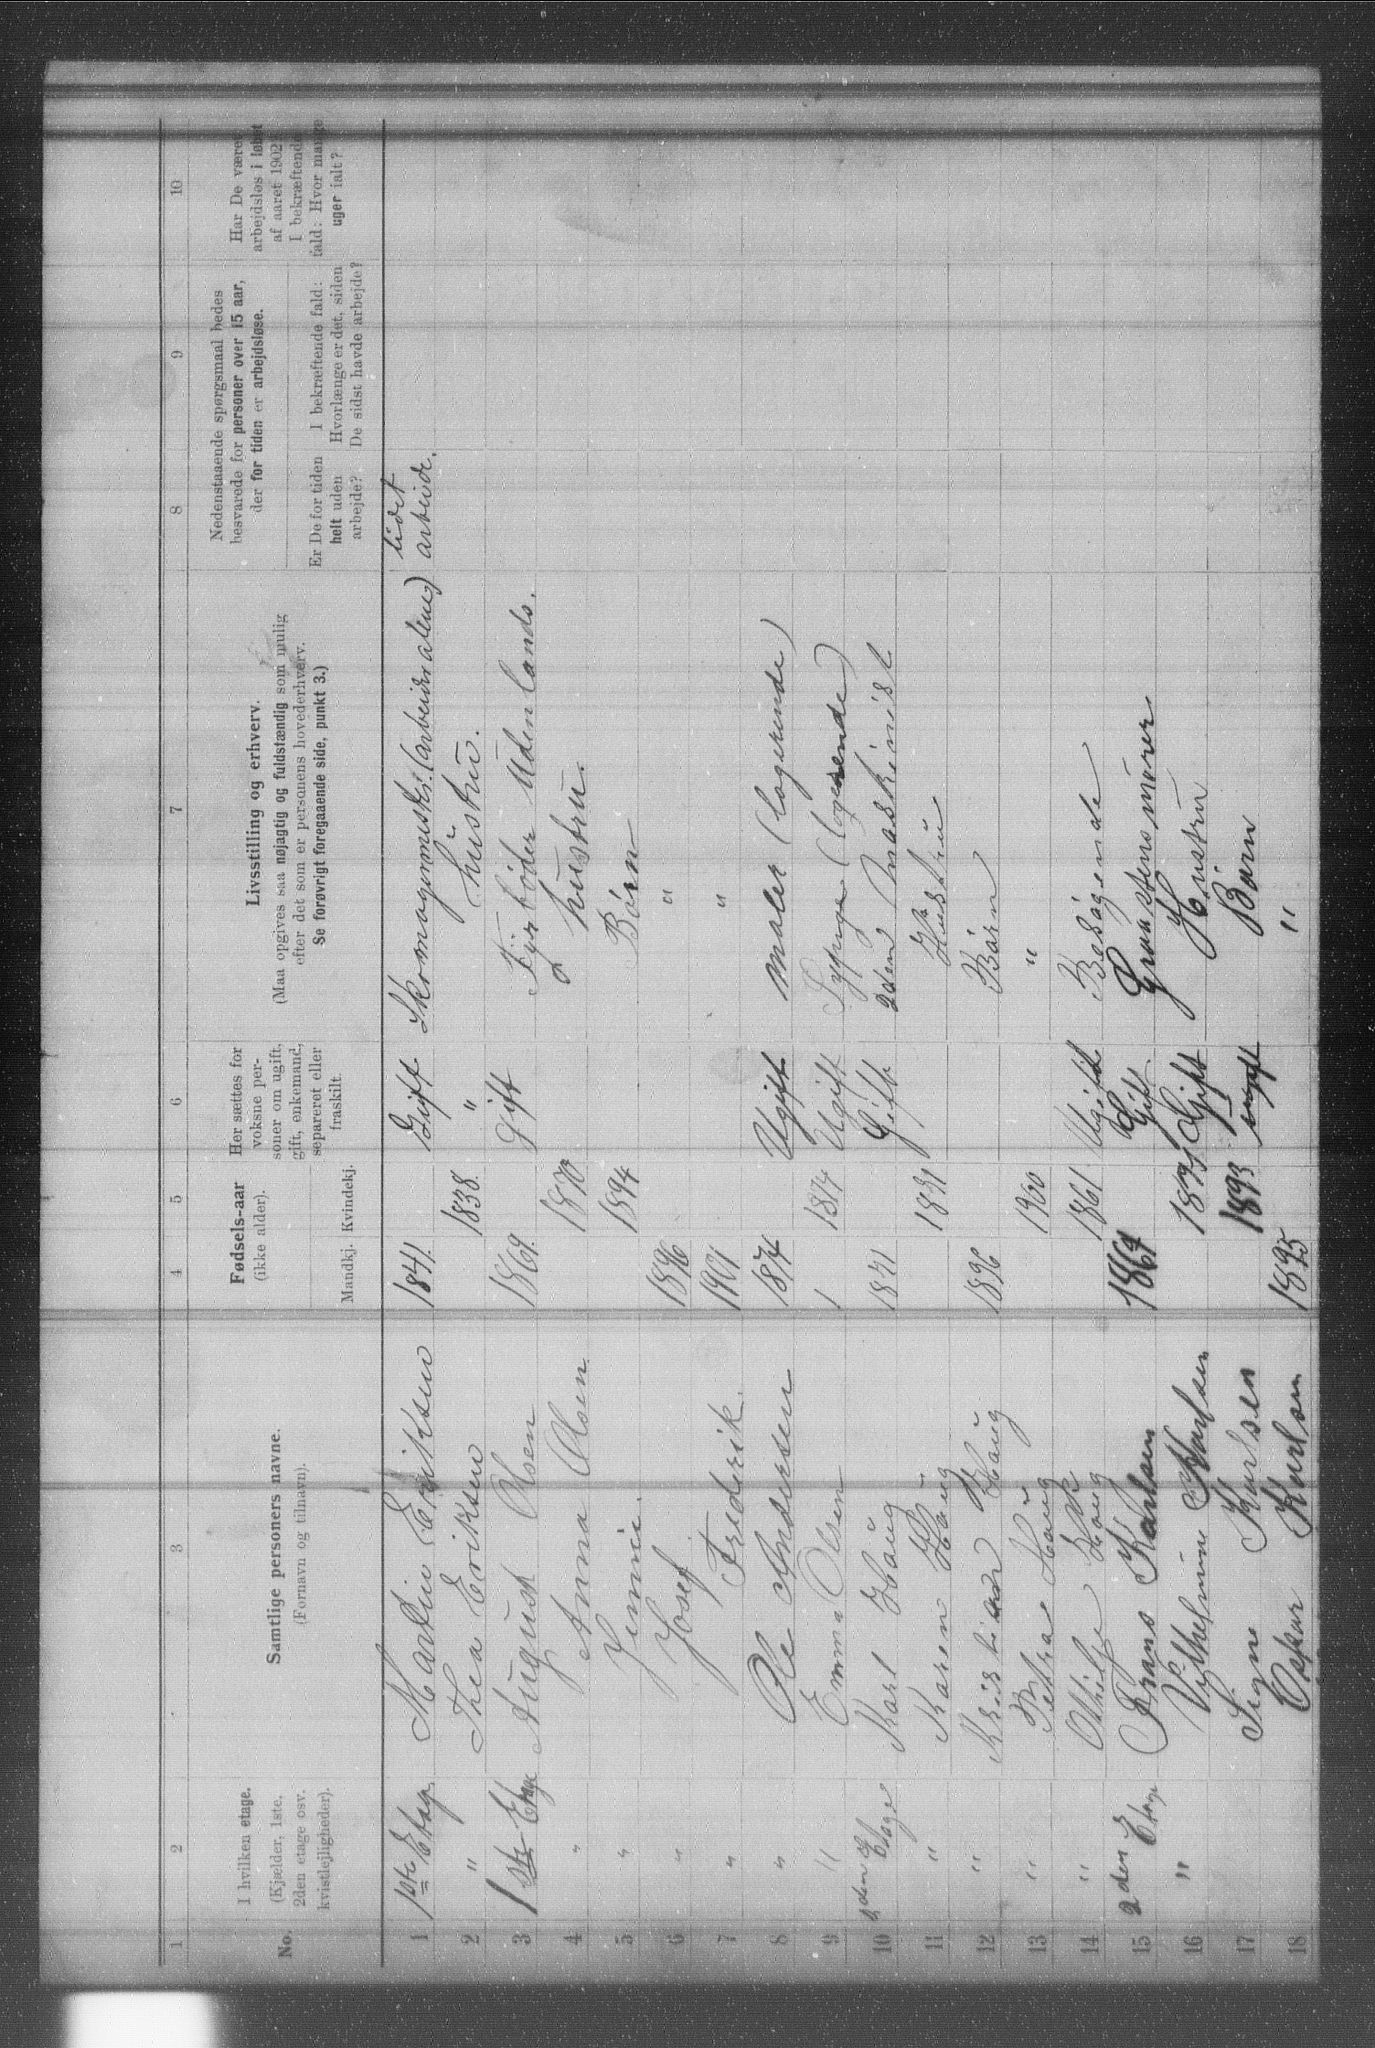 1 2 3 4 5 6 7 8 9 10
No.
I hvilken etage.
(Kjælder, 1ste,
2den etage osv.
kvistlejligheder).
Samtlige personers navne.
(Fornavn og tilnavn).
Fødsels-aar
(ikke alder).
Mandkj. Kvindekj.
Her sættes for
voksne per-
soner om ugift,
gift, enkemand,
separeret eller
fraskilt.
Livsstilling og erhverv.
(Maa opgives saa nøjagtig og fuldstændig som mulig
efter det som er personens hovederhverv.
Se forøvrigt foregaaende side, punkt 3.)
Nedenstaaende spørgsmaal bedes
besvarede for personer over 15 aar,
der for tiden er arbejdsløse.
Er De for tiden
helt uden
arbejde?
I bekræftende fald:
Hvorlænge er det, siden
De sidst havde arbejde?
Har De været
arbejdsløs i løbet
af aaret 1902?
I bekræftende
fald: Hvor mange
uger ialt?
1 1ste Etage Martin Eriksen 1841. Gift Skomagermester (arbeider alene) lidet arbeide.
2 " Thea Eriksen 1838. " hustru.
3 1ste Etage August Olsen 1869. Gift Fyrbøder Udenlands.
4 " Anna Olsen 1870 hustru.
5 " Jennie. 1894 Børn
6 " Josef 1896 "
7 " Fredrik. 1901 "
8 " Ole Andersen 1874 Ugift Maler (logerende)
9 " Emma Olsen 1 1874 Ugift Sypige (logerende)
10 2den Etage Karl Haug 1871 Gift 2den Maskinist
11 " Karen Haug 1871 Hustru
12 " Kristian Haug 1896 Børn
13 " Petra Haug 1900 "
14 " Othilje Haug 1861 Ugift Besøgende
15 2den Etage Frans Karlsen 1864 Gift Graastensmurer
16 " Vilhelmine Karlsen 1871 Gift Hustru
17 Signe Karlsen 1893 ungift Børn
18 Oskar Karlsen 1895 "